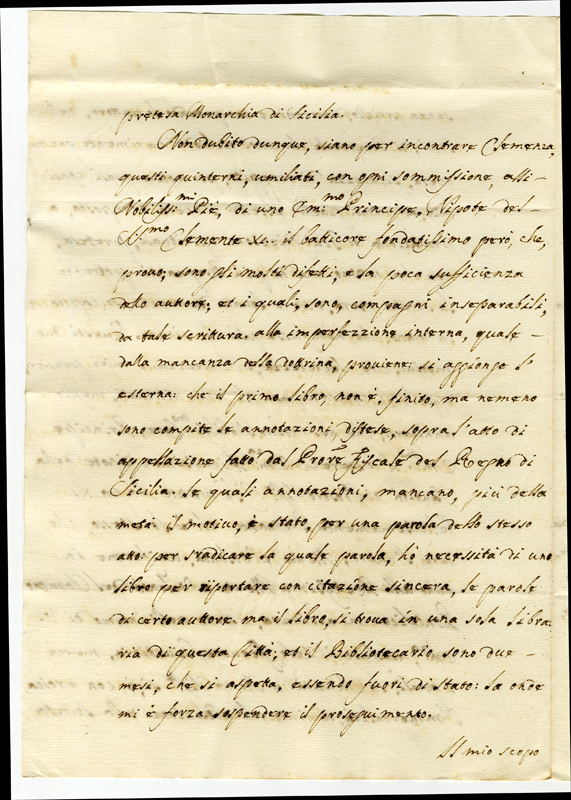 pretesa Monarchia di Sicilia.
Non dubito dunque, siano per incontrare Clemenza,
questi quinterni, umiliati, con ogni sommissione, alli-
Nobilissi:mi Piè, di uno Em:mo Principe, Nipote del-
Clemente XI.. il batticore fondatissimo però, che,
provo; sono gli molti difetti, e la poca sufficienza
dello auttore; et i quali, sono, compagni inseparabili,
da tale scrittura. alla imperfezzione interna, quale -
dalla mancanza della dottrina, proviene: si aggionge l'
esterna: che il primo libro, non è, finito, ma nemeno
sono compite le annotazioni distese, sopra l'atto di
appellazione fatto dal Prore Fiscale del Regno di
Sicilia. le quali annotazioni, mancano, più della
metà. il motivo, è stato, per una parola dello stesso
atto: per sradicare la quale parola, hò necessità di uno
libro per riportare con citazione sincera, le parole
di certo auttore. ma il libro, si trova in una sola libra:
ria di questa Città; et il Bibliotecario sono due -
mesi, che si aspetta, essendo fuori di stato: la onde
mi è forza sospendere il proseguimento.
Il mio scopo